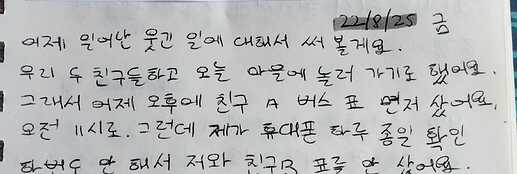 22/8/25 금
어제 일어난 웃긴 일에 대해서 써 볼게요.
우리 두 친구들하고 오늘 마을에 놀러 가기로 했어요.
그래서 어제 오후에 친구 A 버스 표 먼저 샀어요,
오전 11시로. 그런데 제가 휴대폰 하루 종일 확인
한번도 안 해서 저와 친구B 표를 안 샀어요.